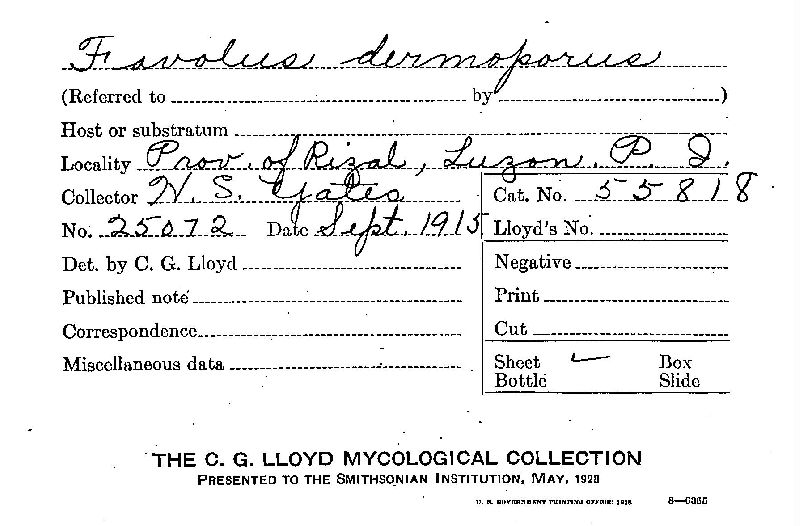 Favolus dermoporus
(Referred to by )
Host or substratum
Locality Prov. of Rizal, Luzon. P. I.
Collector W. S. Yates Cat. No. 55818
No. 25072 Date Sept. 1915 Lloyd's No.
Det. by C. G. Lloyd Negative
Published note Print
Correspondence Cut
Miscellaneous data Sheet Box
Bottle Slide
THE C. G. LLOYD MYCOLOGICAL COLLECTION
PRESENTED TO THE SMITHSONIAN INSTITUTION, MAY, 1928
U. S. GOVERNMENT PRINTING OFFICE: 1928 8—6365